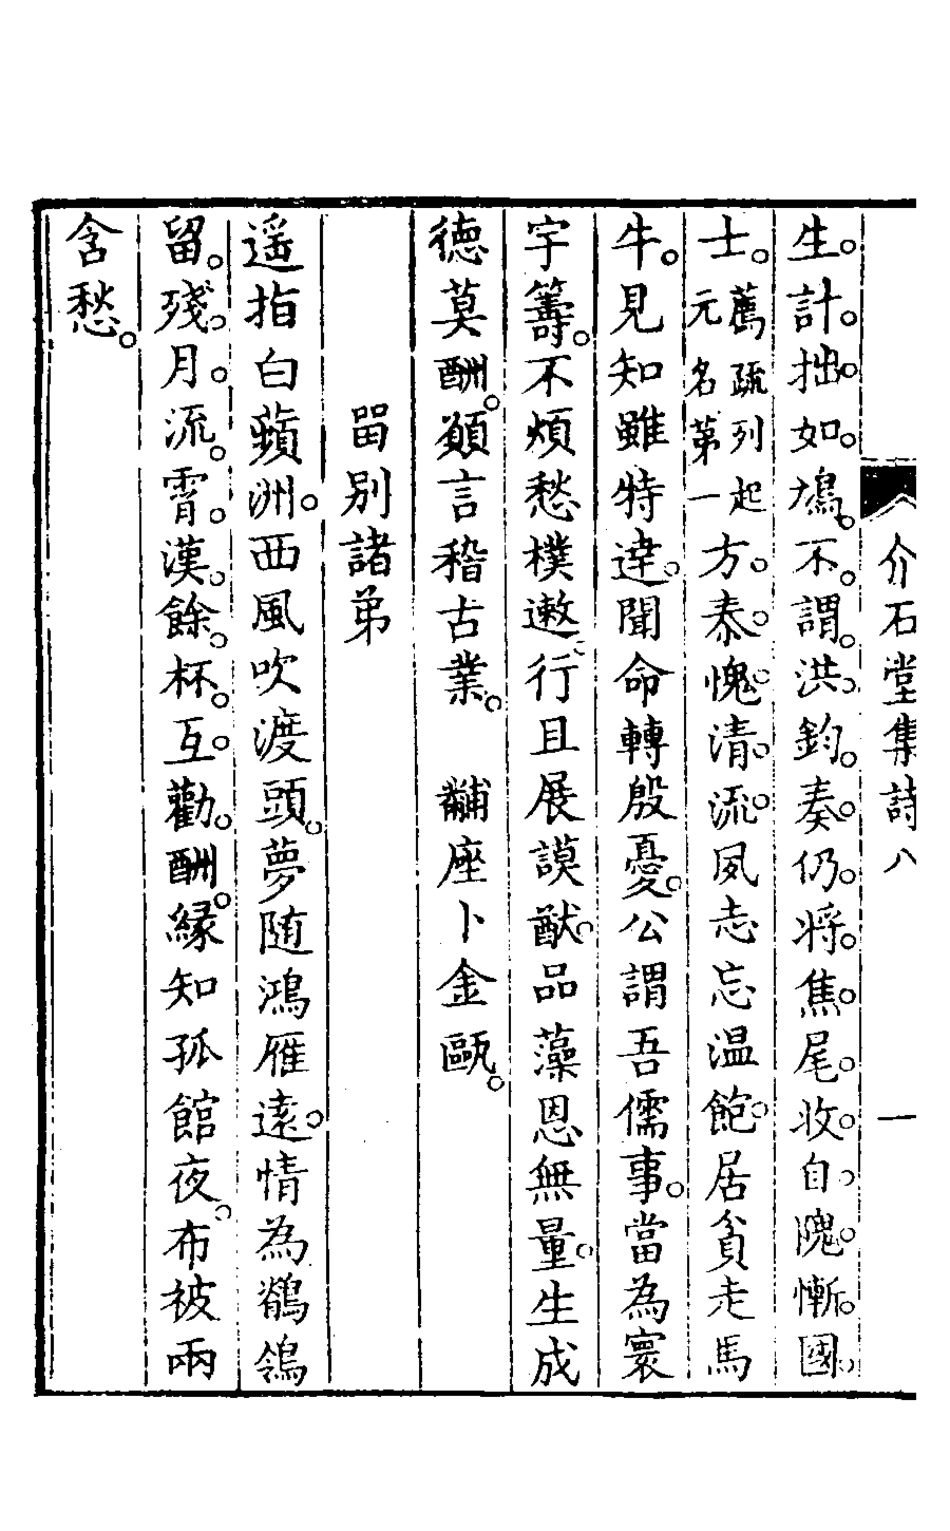 介石堂集詩八
一
生計拙如鳩不謂洪鈞奏仍將焦尾收自媿慚國
士薦疏列起元名第一方泰愧清流夙志忘温飽居貧走馬
牛見知雖特達聞命轉殷憂公謂吾儒事當為寰
宇籌不煩愁樸遫行且展謨猷品藻恩無量生成
德莫酬願言稽古業黼座卜金甌
畱別諸弟
遥指白蘋洲西風吹渡頭夢随鴻雁逺情為鶺鴒
留殘月流霄漢餘杯互勸酬緣知孤館夜布被兩
含愁